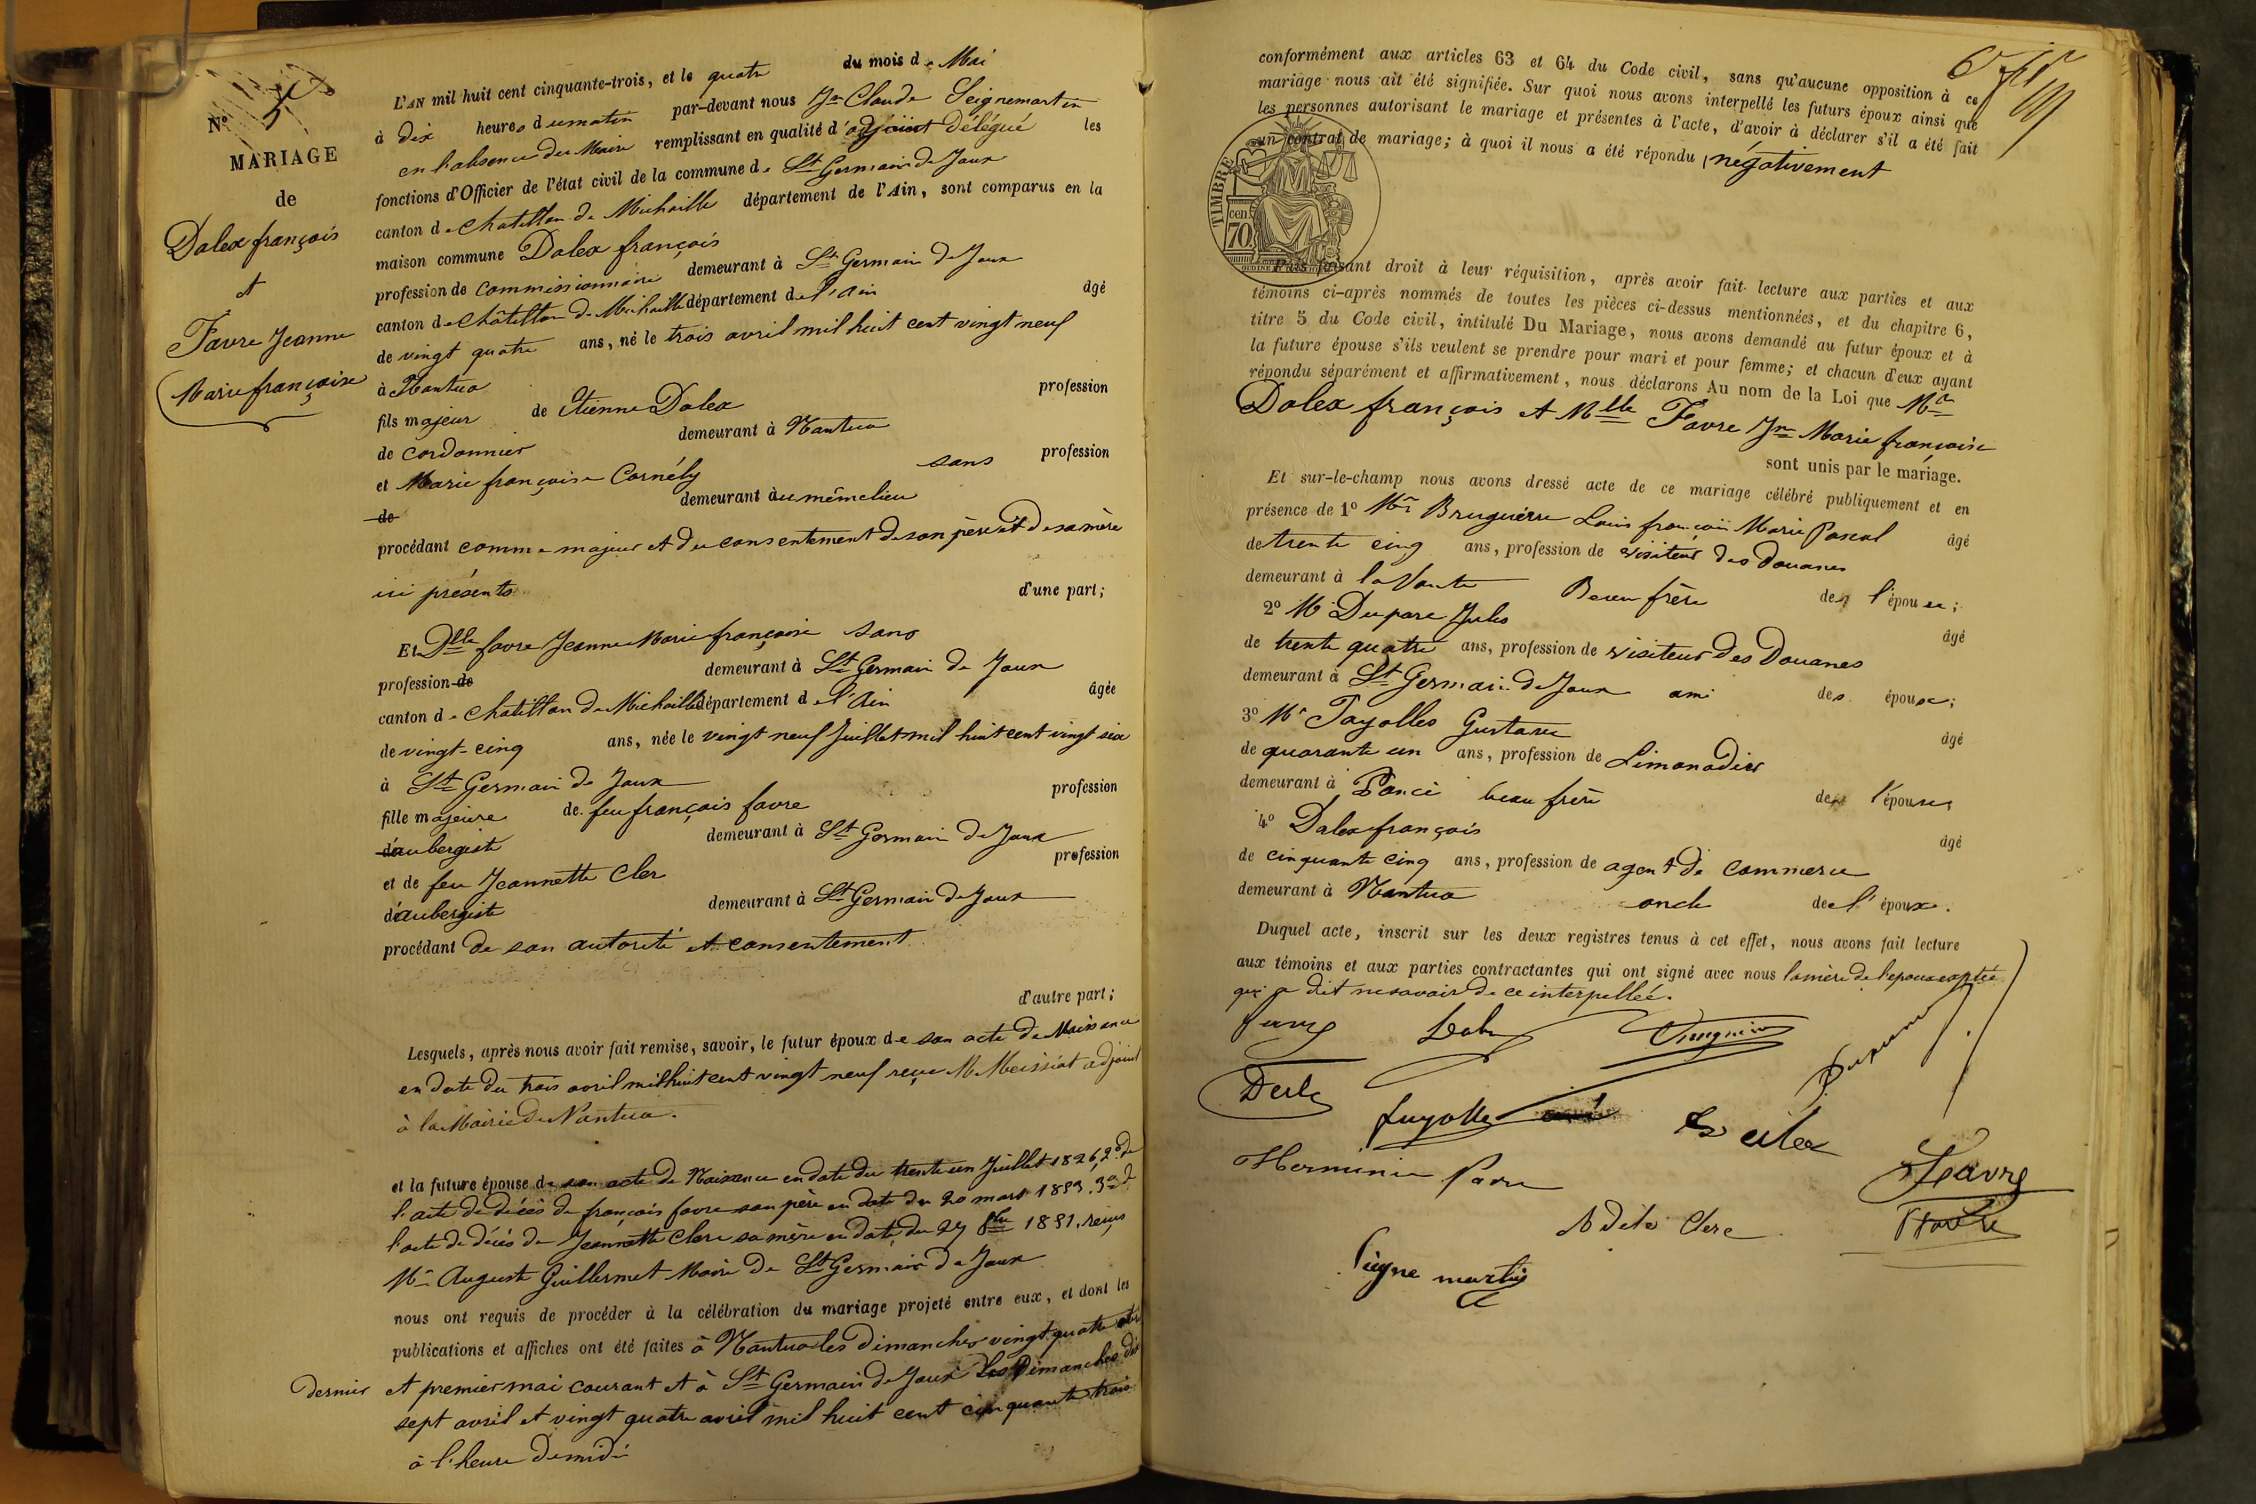 N° 5
MARIAGE
de
Dalex françois
et
Favre Jeanne
Marie françoise
L'AN mil huit cent cinquante-trois, et le quatre du mois de Mai
à dix heures du matin par-devant nous Jn Claude Seignemartin
en l'absence du Maire remplissant en qualité d'adjoint délégué les
fonctions d'Officier de l'état civil de la commune de St Germain de Joux
canton de Chatillon de Michaille département de l'Ain, sont comparus en la
maison commune Dalex françois
profession de commissionnaire demeurant à St Germain de Joux
canton de Châtillon de Michaille département de l'Ain âgé
de vingt quatre ans, né le trois avril mil huit cent vingt neuf
à Nantua
fils majeur de Etienne Dalex profession
de cordonnier demeurant à Nantua
et Marie françoise Cornély sans profession
de demeurant au même lieu
procédant comme majeur et du consentement de son père et de sa mère
ici présents d'une part;
Et Dlle favre Jeanne Marie françoise sans
profession de demeurant à St Germain de Joux
canton de Chatillon de Michaille département de l'Ain âgée
de vingt-cinq ans, née le vingt neuf Juillet mil huit cent vingt six
à St Germain de Joux
fille majeure de feu françois favre profession
d'aubergiste demeurant à St Germain de Joux
et de feu Jeannette Cler profession
d'aubergiste demeurant à St Germain de Joux
procédant de son autorité et consentement
d'autre part;
Lesquels, après nous avoir fait remise, savoir, le futur époux de son acte de Naissance
en date du trois avril mil huit cent vingt neuf reçu M Messiat adjoint
à la Mairie de Nantua.
et la future épouse de son acte de Naissance en date du trente un Juillet 1826, 2° de
l'acte de décès de françois favre son père en date du 20 mars 1853. 3° de
l'acte de décès de Jeannette Clerc sa mère en date du 27 8bre 1851, reçus
Mr Auguste Guillermet Maire de St Germain de Joux
nous ont requis de procéder à la célébration du mariage projeté entre eux, et dont les
publications et affiches ont été faites à Nantua les dimanches vingt quatre avril
dernier et premier mai courant et à St Germain de Joux les Dimanches dix
sept avril et vingt quatre avril mil huit cent cinquante trois
à l'heure de midi
conformément aux articles 63 et 64 du Code civil, sans qu'aucune opposition à ce
mariage nous ait été signifiée. Sur quoi nous avons interpellé les futurs époux ainsi que
les personnes autorisant le mariage et présentes à l'acte, d'avoir à déclarer s'il a été fait
un contrat de mariage; à quoi il nous a été répondu négativement
TIMBRE
cen 70
Puis faisant droit à leur réquisition, après avoir fait lecture aux parties et aux
témoins ci-après nommés de toutes les pièces ci-dessus mentionnées, et du chapitre 6,
titre 5 du Code civil, intitulé Du Mariage, nous avons demandé au futur époux et à
la future épouse s'ils veulent se prendre pour mari et pour femme; et chacun d'eux ayant
répondu séparément et affirmativement, nous déclarons Au nom de la Loi que Mr
Dalex françois et Mlle Favre Jne Marie françoise
sont unis par le mariage.
Et sur-le-champ nous avons dressé acte de ce mariage célébré publiquement et en
présence de 1° Mr Bruguière Louis françois Marie Pascal âgé
de trente cinq ans, profession de visiteur des Douanes
demeurant à la Voute Beau frère de l'épouse;
2° Mr Duparc Jules âgé
de trente quatre ans, profession de visiteur des Douanes
demeurant à St Germain de Joux ami des époux;
3° Mr Fayolles Gustave âgé
de quarante un ans, profession de Limonadier
demeurant à Poncin beau frère de l'épouse,
4° Dalex françois âgé
de cinquante cinq ans, profession de agent de commerce
demeurant à Nantua oncle de l'époux.
Duquel acte, inscrit sur les deux registres tenus à cet effet, nous avons fait lecture
aux témoins et aux parties contractantes qui ont signé avec nous la mère de l'époux exptée
qui a dit ne savoir de ce interpellée.
Favre
Duparc
fayolle
Herminie favre
Favre
Adele Clerc
Seigne martin